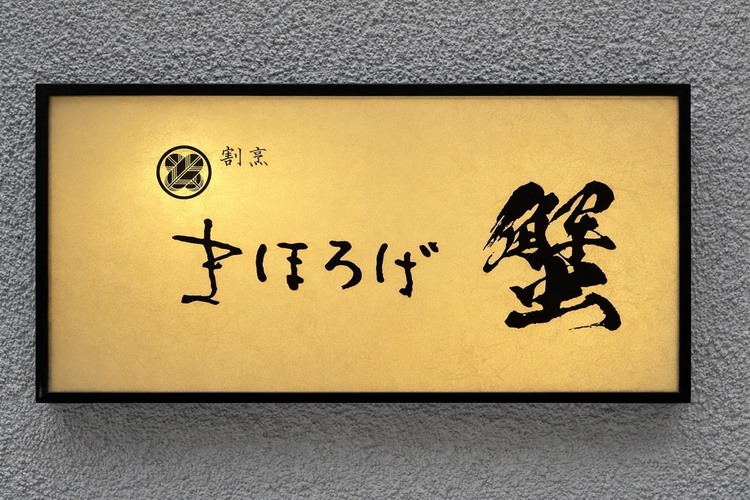 割烹
まほろば
蟹